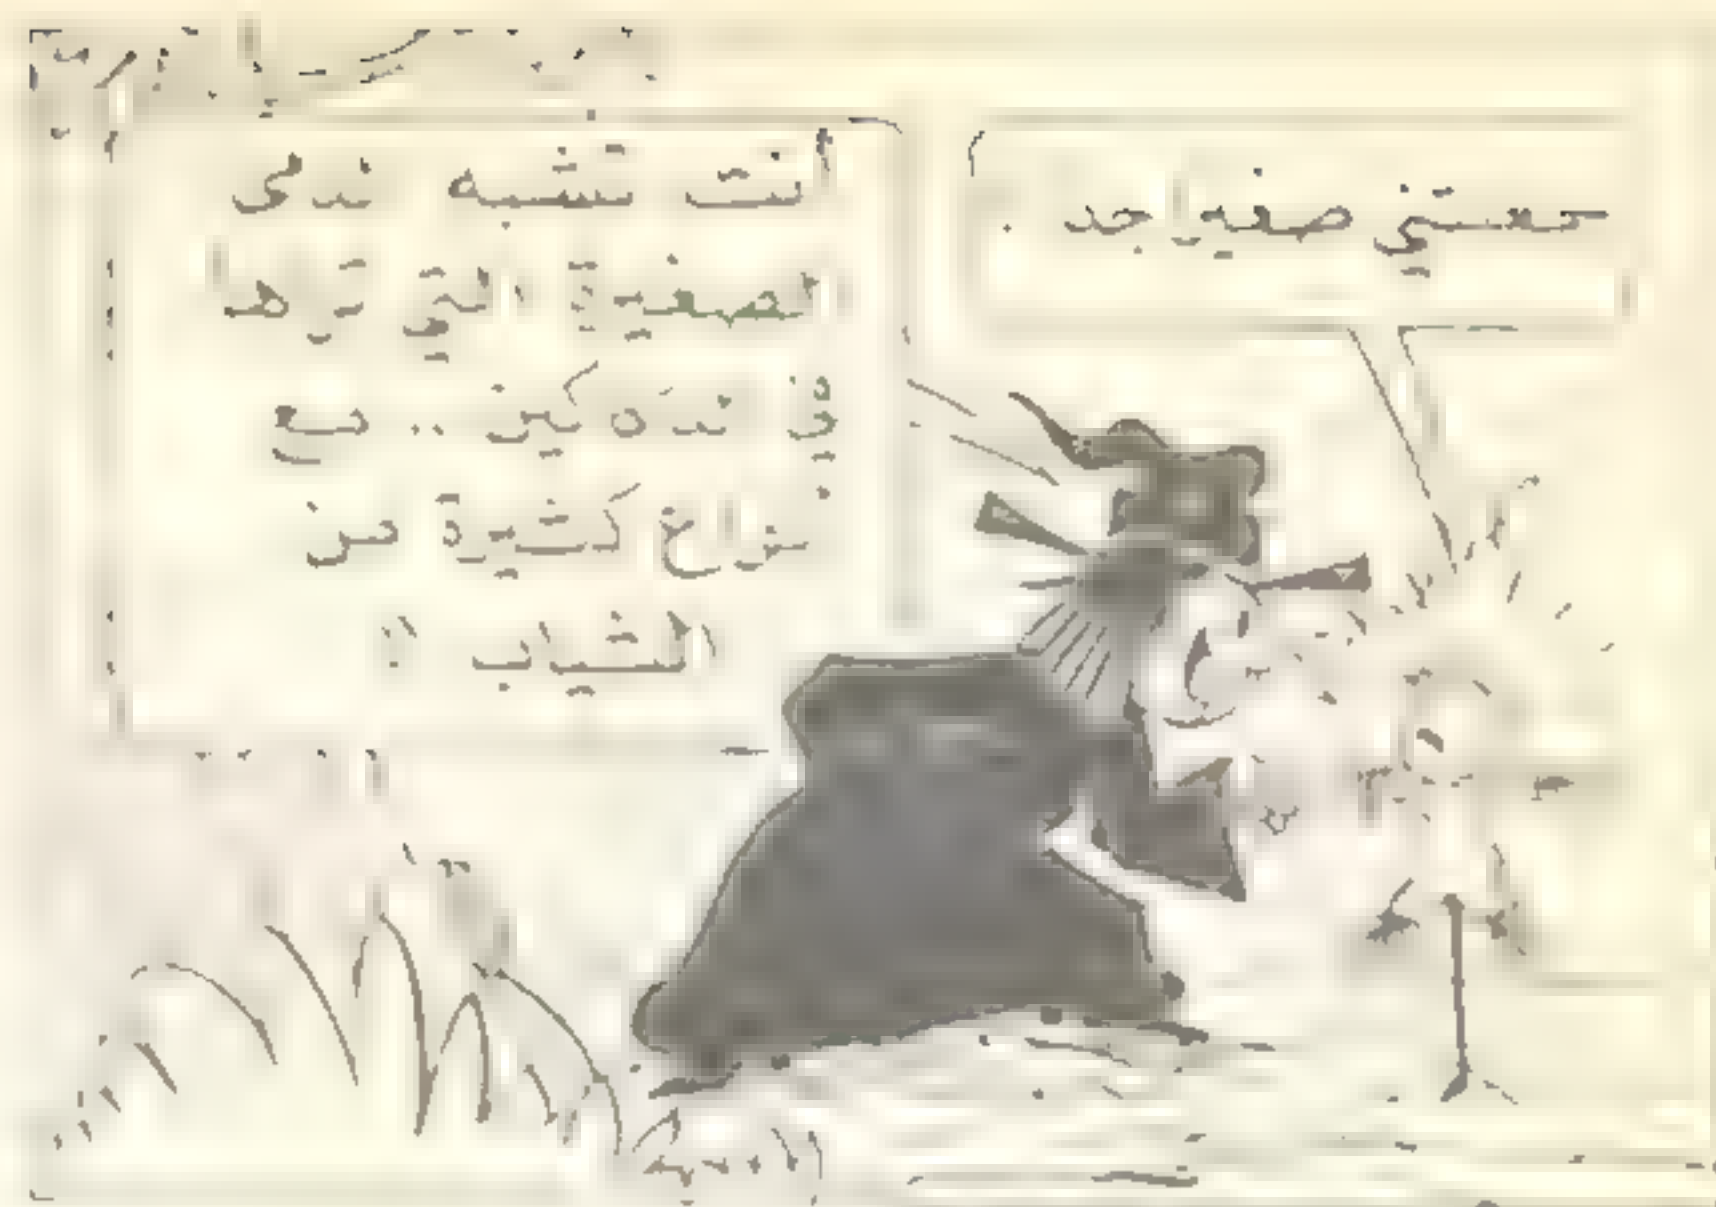 حعستني صغيرا جد .
أنت تشبه ندمى
الصغيرة التي ترها
في ندكين .. مع
نراغ كثيرة من
الشباب !!